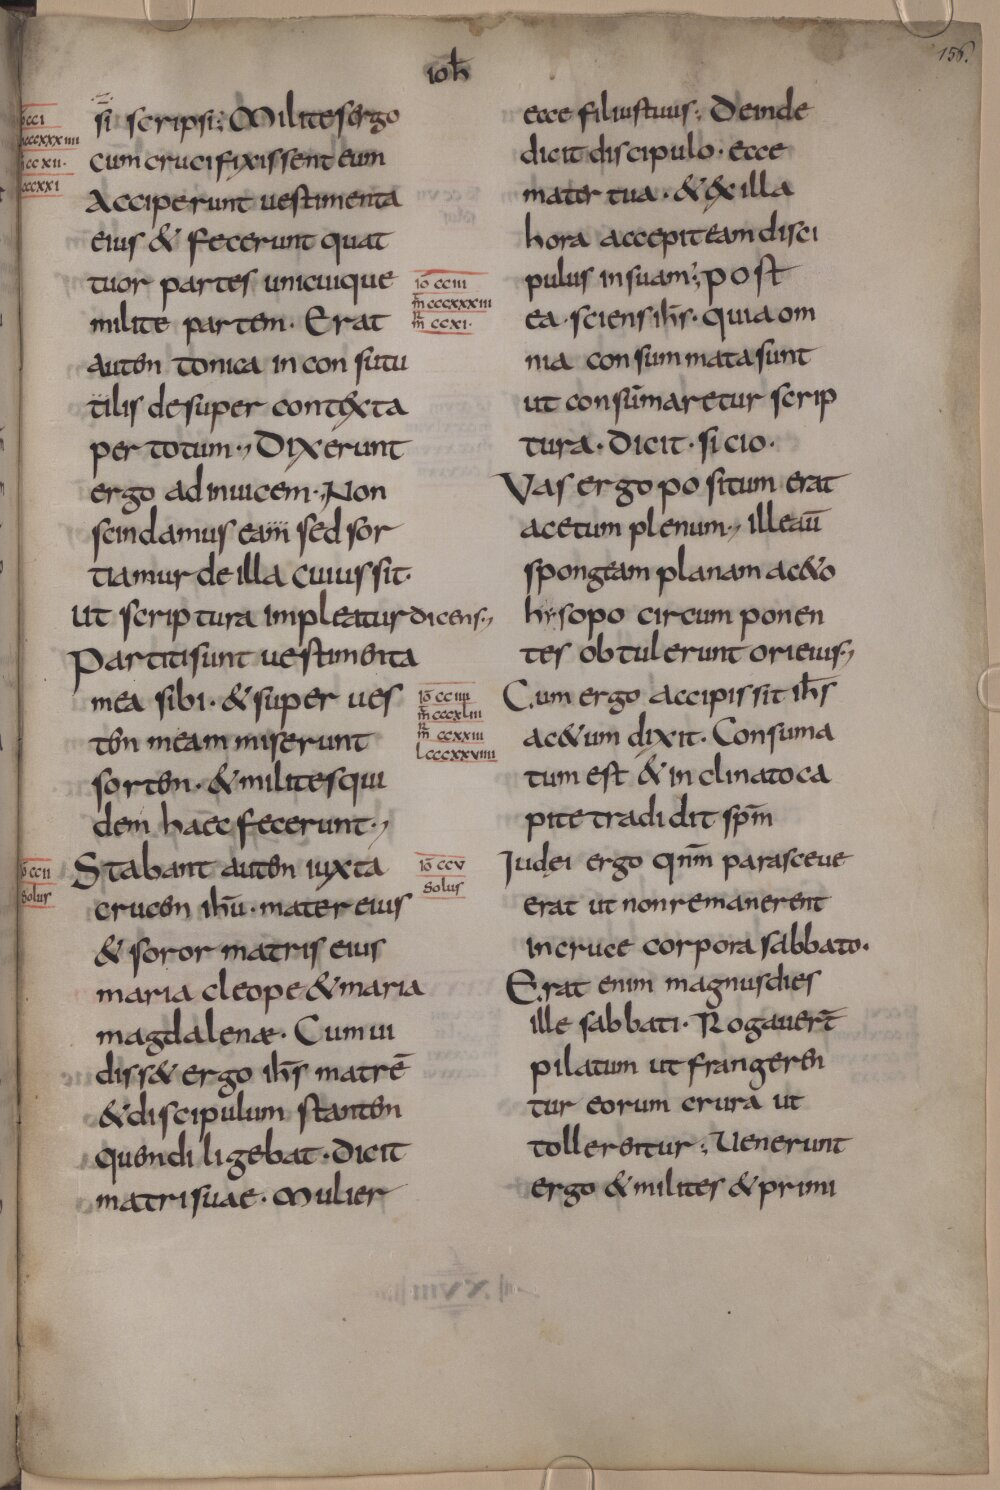 ioħ
156.
si scripsi; Milites ergo
cum crucifixissent eum
Acciperunt uestimenta
eius & fecerunt quat
tuor partes unicuique
milite partem. Erat
autem tonica in con sutu
tilis desuper contexta
per totum., Dixerunt
ergo ad inuicem., Non
scindamus eam sed sor
tiamur de illa cuius sit.
Ut scriptura impleatur dicens.,
Partiti sunt uestimenta
mea sibi. & super ues
tem meam miserunt
sortem. & milites qui
dem haec fecerunt.,
Stabant autem iuxta
crucem ihū. mater eius
& soror matris eius
maria cleope & maria
magdalenæ. Cum ui
diss& ergo ihs̄ matrē
& discipulum stantem
quem diligebat. Dicit
matri suae. Mulier
ccxii.
ō ccii
Solus
iō cciii
m̄ cccxxxiii
m̄ ccxi.
iō cciiii
m̄ cccxliii
m̄ ccxxiii
lcccxxviiii
iō ccv
Solus
ecce filius tuus; Deinde
dicit discipulo. ecce
mater tua. & ex illa
hora accepit eam disci
pulus in suam; post
ea. sciens ihs̄. quia om
nia consummata sunt
ut consūmaretur scrip
tura. Dicit. sicio.
Vas ergo positum erat
acetum plenum., illeaū
spongeam planam ac&o
hysopo circum ponen
tes obtulerunt ori eius.,
Cum ergo accipissit ihs̄
ac&um dixit. Consuma
tum est & inclinato ca
pite tradidit spm̄
Judei ergo qnm̄ parasceue
erat ut non remanerent
in cruce corpora sabbato.
Erat enim magnus dies
ille sabbati. Rogauerт̄
pilatum ut frangeren
tur eorum crura ut
tollerentur; Uenerunt
ergo & milites & primi